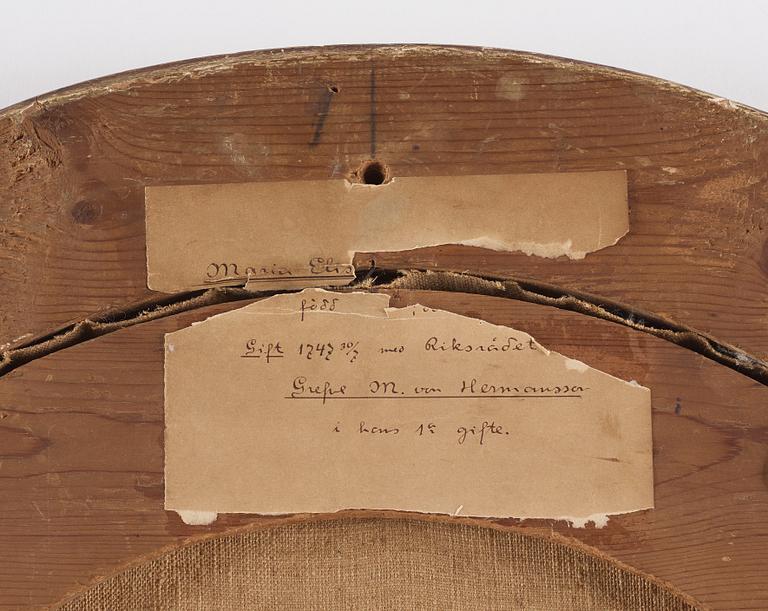 Maria Elis
född
Gift 1747 30/7 med Riksrådet
Grefve M. von Hermansson
i hans 1:a gifte.